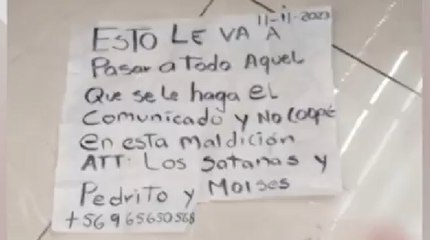 11-11-2023
ESTO LE VA A
Pasar a Todo Aquel
Que se le haga el
Comunicado y No Coope
en esta Maldición
ATT: Los Satanas y
Pedrito y Moises
+56965650568